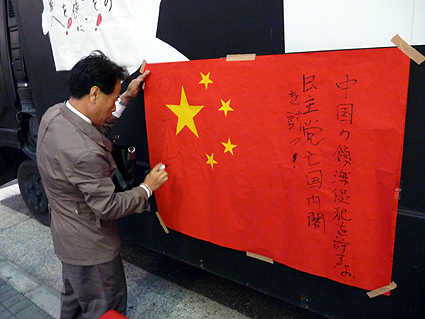 中国の領海侵犯を許すな
民主党亡国内閣
を討つ!